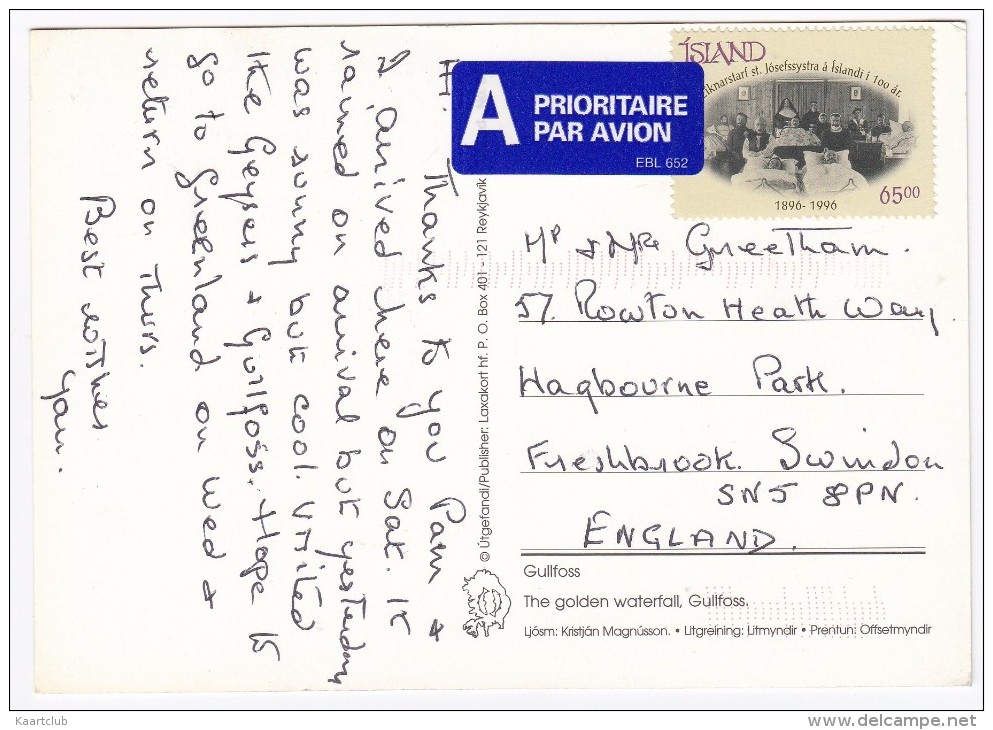 Hi. Thanks to you Pam &
I arrived here on Sat. It
rained on arrival but yesterday
was sunny but cool. Visited
the Geysers & Gullfoss. Hope to
go to Greenland on Wed &
return on Thurs.
Best wishes
© Útgefandi/Publisher: Laxakort hf. P. O. Box 401 - 121 Reykjavík
A PRIORITAIRE
PAR AVION
EBL 652
ÍSLAND
íknarstarf st. Jósefssystra á Íslandi í 100 ár.
1896-1996
6500
Mr & Mrs Greetham.
57. Rowton Heath Way,
Hagbourne Park.
Freshbrook. Swindon
SN5 8PN.
ENGLAND.
Gullfoss
The golden waterfall, Gullfoss.
Ljósm: Kristján Magnússon. • Litgreining: Litmyndir • Prentun: Offsetmyndir
Kaartclub
www.delcampe.net